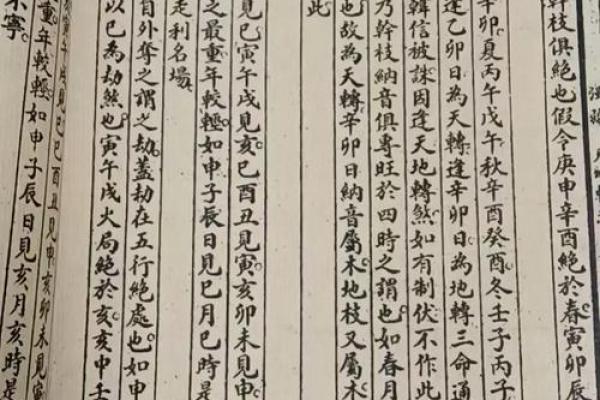 幹枝俱絕也假令庚申辛酉絕於春寅卯辰
辛卯。夏丙午戊午。秋辛酉癸酉。冬壬子丙子
逢乙卯日為天轉逢辛卯日。為地轉三命通
韓信被誅因逢天地轉煞如有制伏不作此
乃幹枝納音俱專旺於四時之謂也如春月
也。故為天轉辛卯日納音屬木地枝又屬木
此
見巳寅午戌見亥。巳酉丑見寅。亥卯未見申。
之最重年較輕。如申子辰日見巳月巳時是
走利名場。
自外奪之謂之劫。蓋劫在五行絕處也。如申
以巳為劫煞也。寅午戌火局絕於亥。亥申壬
寅午戌見巳巳酉丑見申亥卯未見寅
重年較輕如申子辰日見亥月亥時是
不寧。